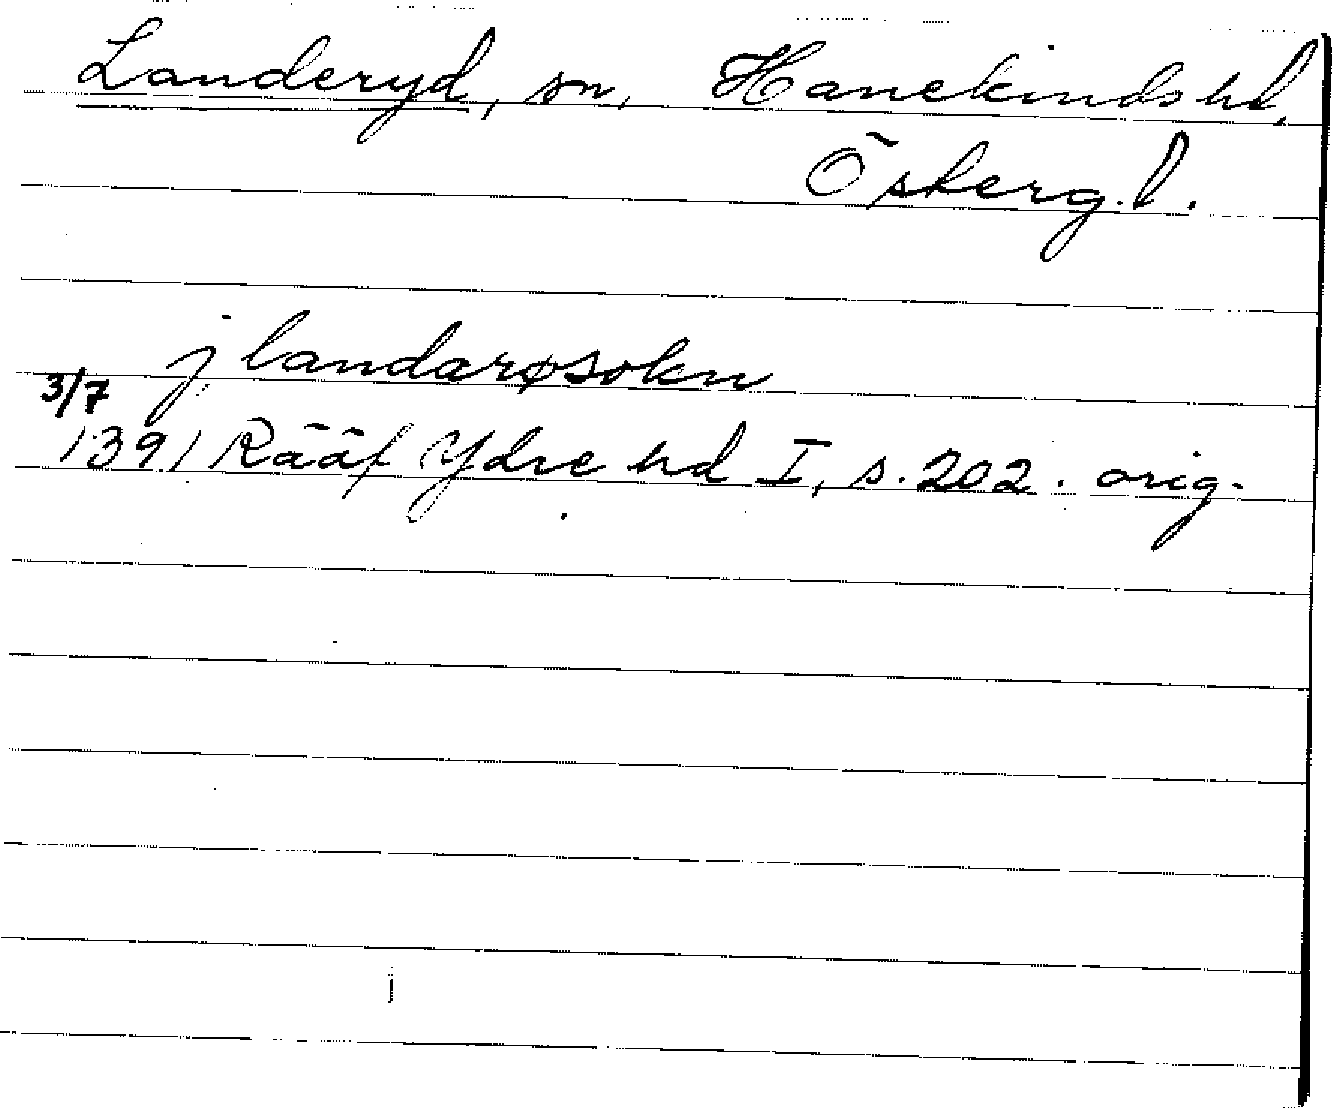 Landeryd, sn, Hanekinds hd,
Österg. l.
j landarøsokn
3/7
1391 Rääf Ydre hd I, s. 202. orig.